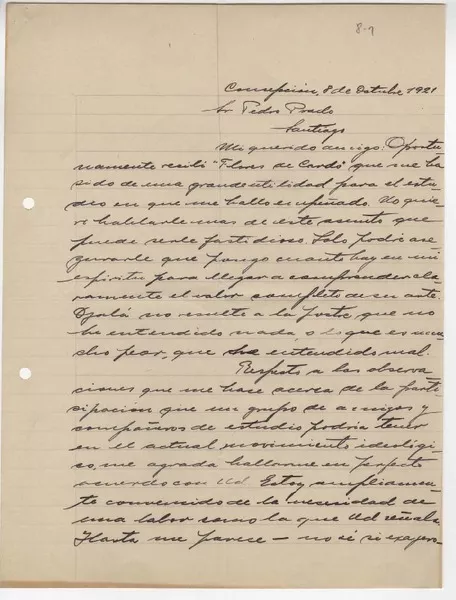 8-9
Concepción, 8 de Octubre 1921
Sr Pedro Prado
Santiago
Mi querido amigo: Oportu-
namente recibí "Flores de Cardo" que me ha
sido de una grande utilidad para el estu-
dio en que me hallo empeñado. No quie-
ro hablarle mas de este asunto que
puede serle fastidioso. Solo podré ase-
gurarle que pongo cuanto hay en mi
espíritu para llegar a comprender cla-
ramente el valor completo de su arte.
Ojalá no resulte a la postre que no
he entendido nada, o lo que es mu-
cho peor, que he entendido mal.
Respecto a las observa
ciones que me hace acerca de la parti-
cipacion que un grupo de amigos y
compañeros de estudio podría tener
en el actual movimiento ideológi-
co, me agrada hallarme en perfecto
acuerdo con Ud. Estoy ampliamen-
te convencido de la necesidad de
una labor como la que Ud señala.
Hasta me parece — no sé si exagero-